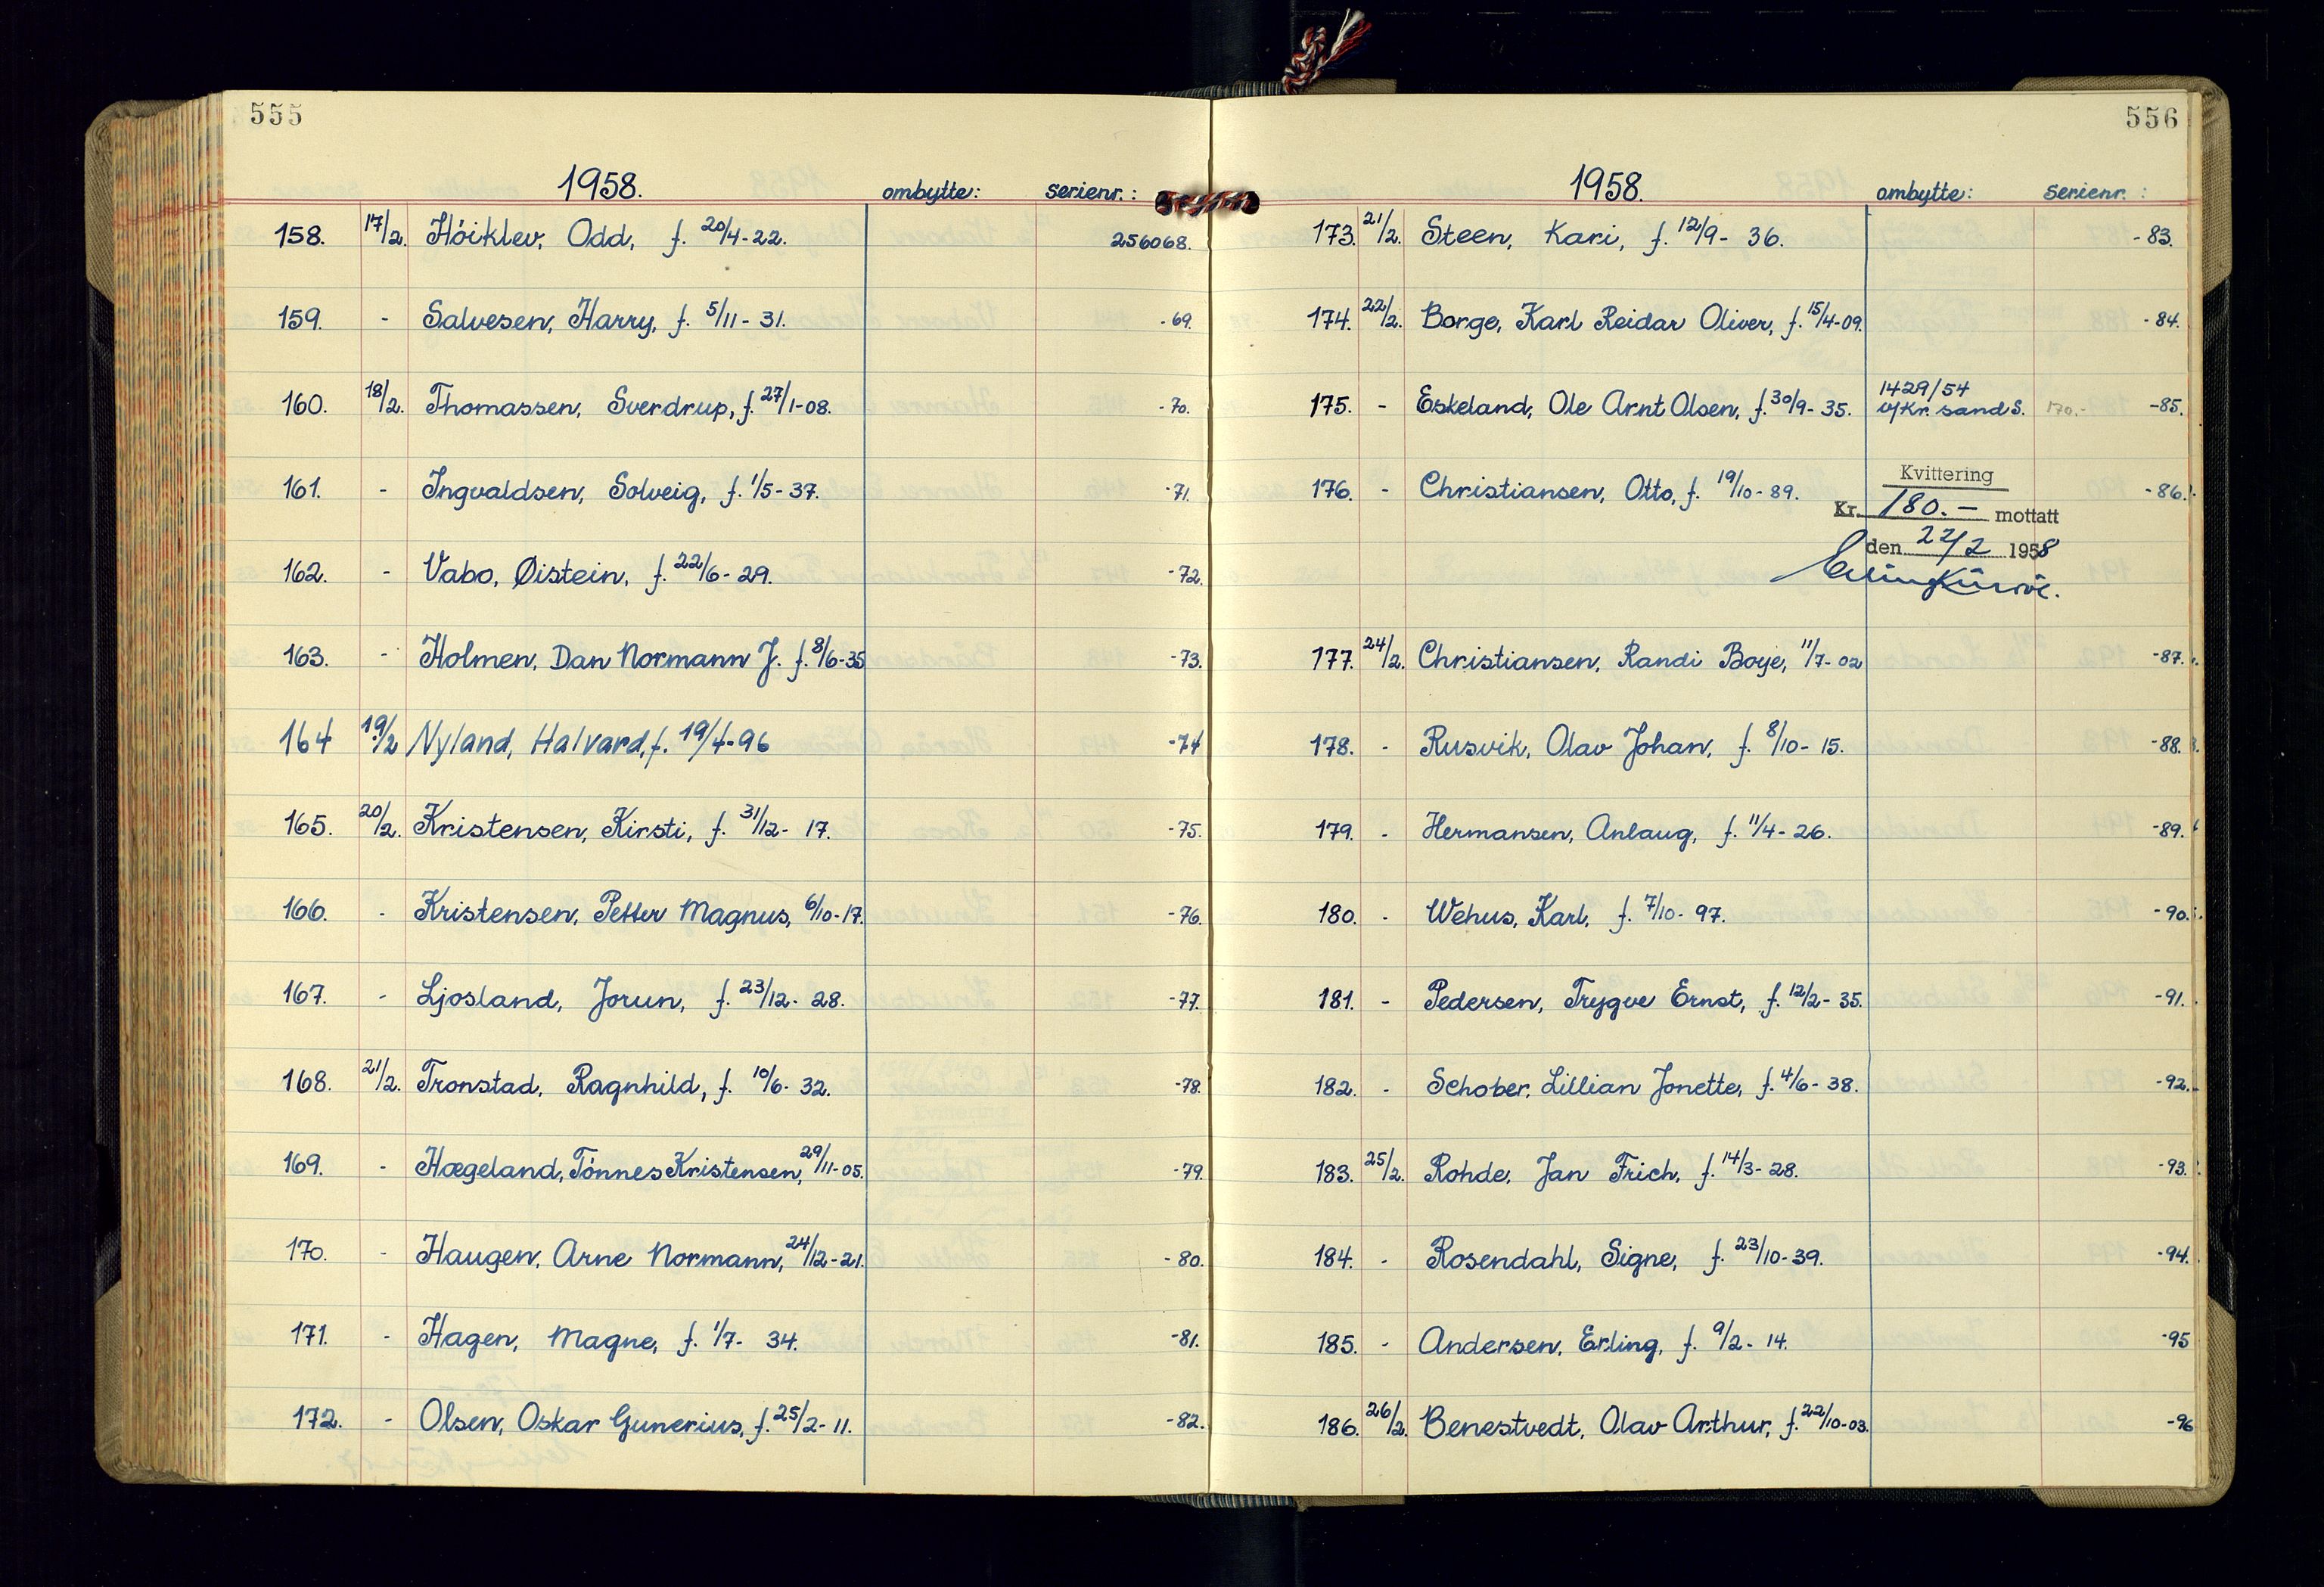 555
1958. ombytte: serienr.:
158. 17/2. Høiklev, Odd, f. 20/4-22. 256068.
159. - Salvesen, Harry, f. 5/11-31. -69.
160. 18/2. Thomassen, Sverdrup, f. 27/1-08. -70.
161. - Ingvaldsen, Solveig, f. 1/5-37. -71.
162. - Vabo, Øistein, f. 22/6-29. -72.
163. - Holmen, Dan Normann J. f. 8/6-35 -73.
164 19/2 Nyland, Halvard, f. 19/4-96 -74
165. 20/2. Kristensen, Kirsti, f. 31/12-17. -75.
166. - Kristensen, Petter Magnus, 6/10-17. -76.
167. - Ljosland, Jorun, f. 23/12-28. -77.
168. 21/2. Tronstad, Ragnhild, f. 10/6-32. -78.
169. - Hægeland, Tønnes Kristensen, 29/11-05. -79.
170. - Haugen, Arne Normann, 24/12-21. -80.
171. - Hagen, Magne, f. 1/7-34. -81.
172. - Olsen, Oskar Gunerius, f. 25/2-11. -82.
556
1958. ombytte: serienr.:
173. 21/2. Steen, Kari, f. 12/9-36. -83.
174. 22/2. Borge, Karl Reidar Oliver, f. 15/4-09. -84.
175. - Eskeland, Ole Arnt Olsen, f. 30/9-35. 1429/54 v/Kr.sand S. 170.- -85.
176. - Christiansen, Otto, f. 19/10-89. -86.
Kvittering
Kr. 180.- mottatt
den 22/2 1958
177. 24/2. Christiansen, Randi Boye, 11/7-02 -87.
178. - Rusvik, Olav Johan, f. 8/10-15. -88.
179. - Hermansen, Anlaug, f. 11/4-26. -89.
180. - Wehus, Karl, f. 7/10-97. -90.
181. - Pedersen, Trygve Ernst, f. 12/2-35. -91.
182. - Schober, Lillian Jonette, f. 4/6-38. -92.
183. 25/2. Rohde, Jan Frich, f. 14/3-28. -93.
184. - Rosendahl, Signe, f. 23/10-39. -94.
185. - Andersen, Erling, f. 9/2-14. -95
186. 26/2. Benestvedt, Olav Arthur, f. 22/10-03. -96